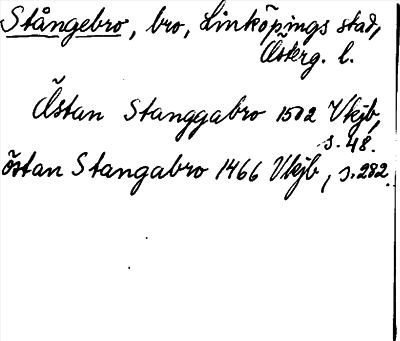 Stångebro, bro, Linköpings stad,
Österg. l.
Östan Stanggabro 1502 Vkjb,
s. 48.
östan Stangabro 1466 Vkjb, s. 282.